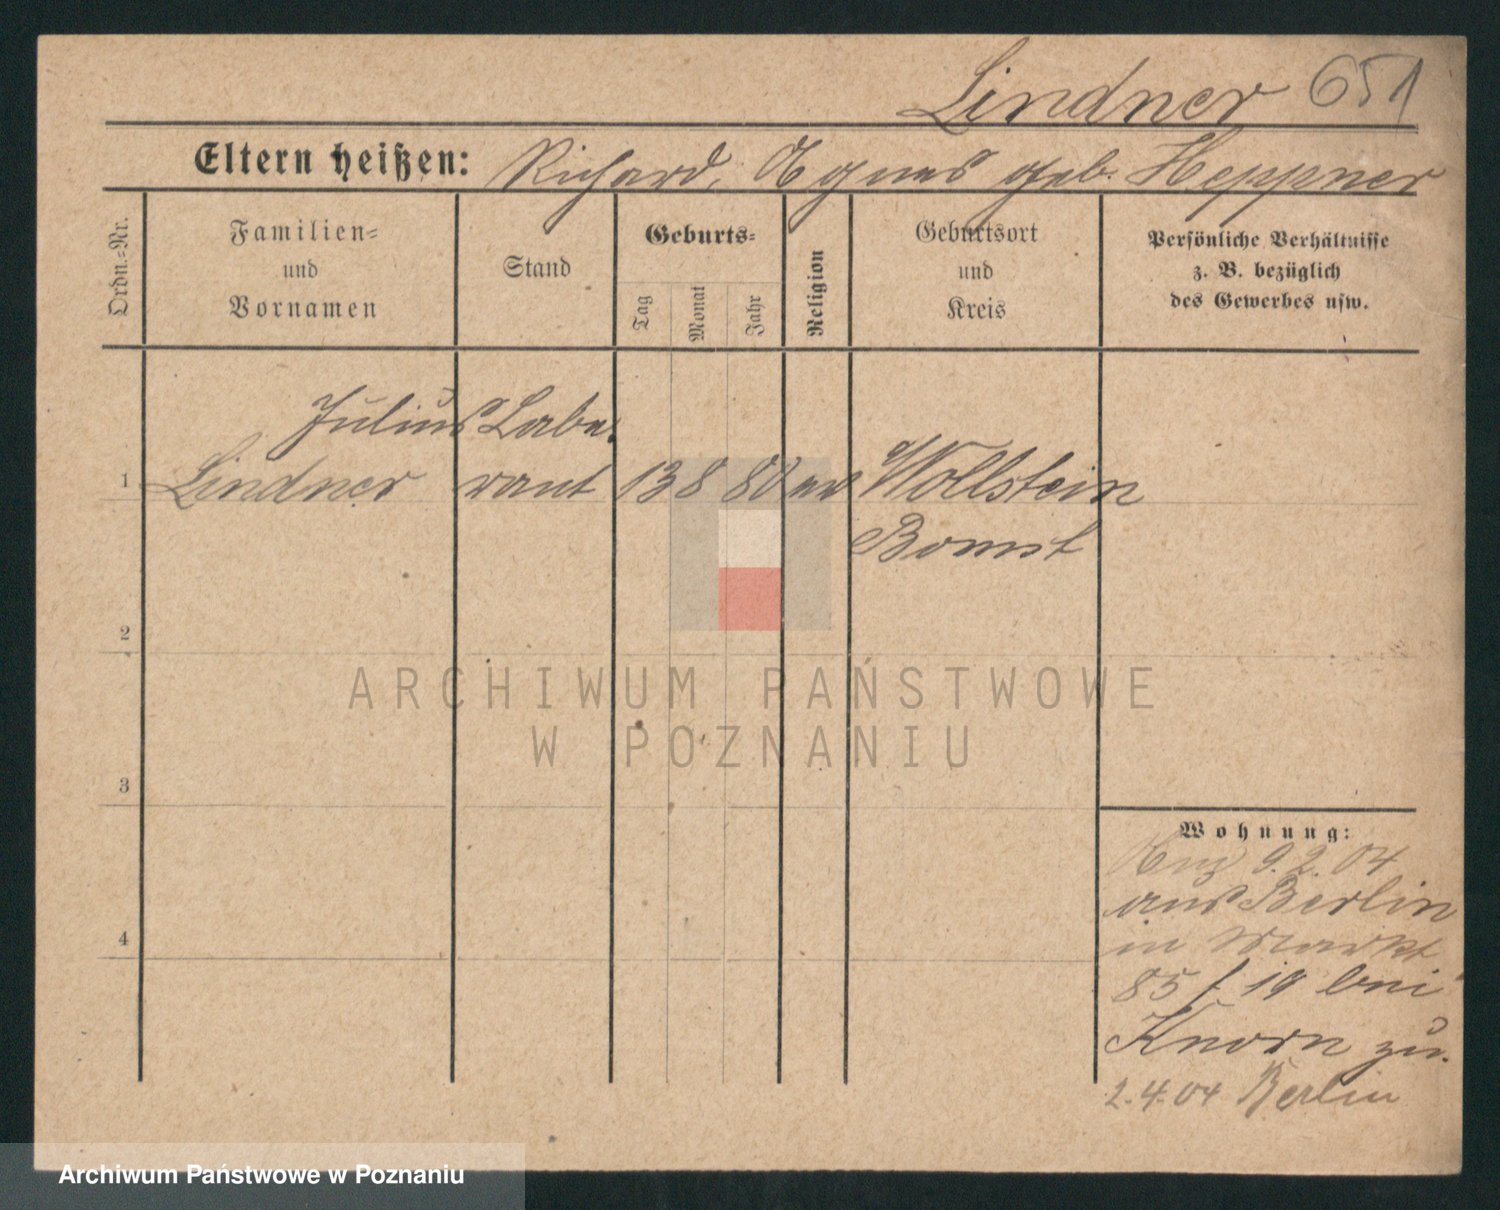 Lindner 651
Eltern heißen: Richard, Agnes geb. Heppner
Ordn.-Nr.
Familien-
und
Vornamen
Stand
Geburts-
Tag
Monat
Jahr
Religion
Geburtsort
und
Kreis
Persönliche Verhältnisse
z. B. bezüglich
des Gewerbes usw.
Julius Labo-
1 Lindner rant 13 8 80 ev Wollstein
Bomst
2
3
4
ARCHIWUM PAŃSTWOWE
W POZNANIU
Wohnung:
9.2.04
aus Berlin
in Markt
85 / 19 bei
Knorn zu.
2.4.04 Berlin
Archiwum Państwowe w Poznaniu